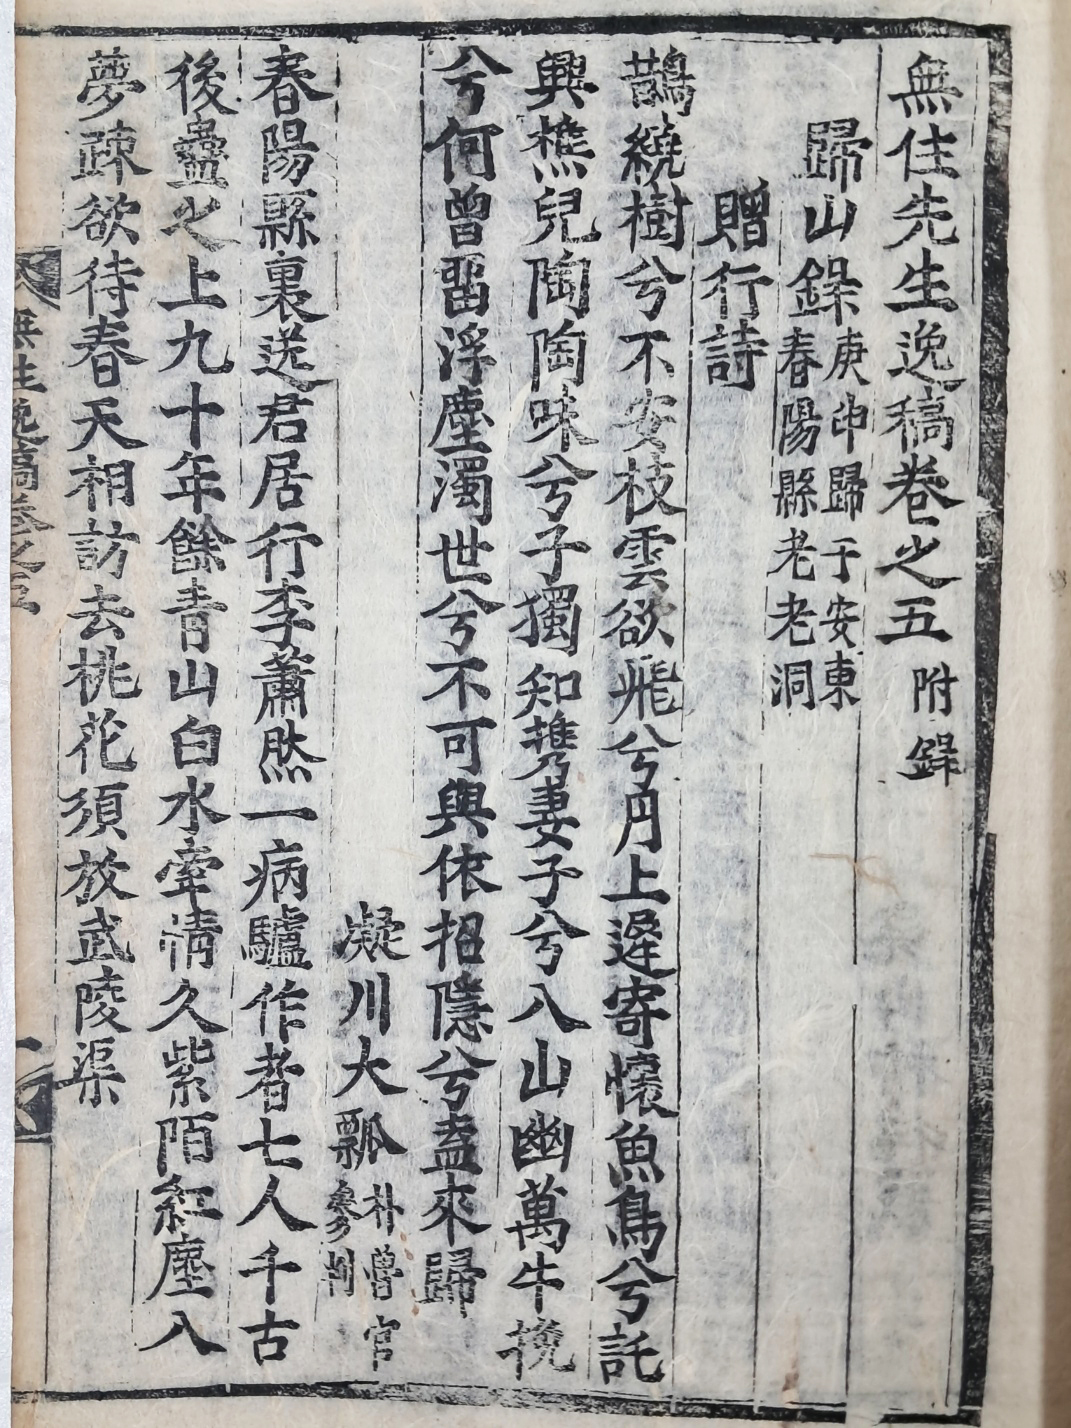 無住先生逸稿卷之五 附錄
歸山錄 庚申歸于安東春陽縣老老洞
贈行詩
鵲繞樹兮不安枝雲欲飛兮月上遲寄懷魚鳥兮託
興樵兒陶陶味兮子獨知携妻子兮入山幽萬牛挽
兮何曾畱浮塵濁世兮不可與依招隱兮盍來歸
凝川大瓢 朴魯官參判
春陽縣裏送君居行李蕭然一病驢作者七人千古
後蠱之上九十年餘青山白水牽情久紫陌紅塵入
夢疎欲待春天相訪去桃花須放武陵渠
無住逸稿卷之五
一